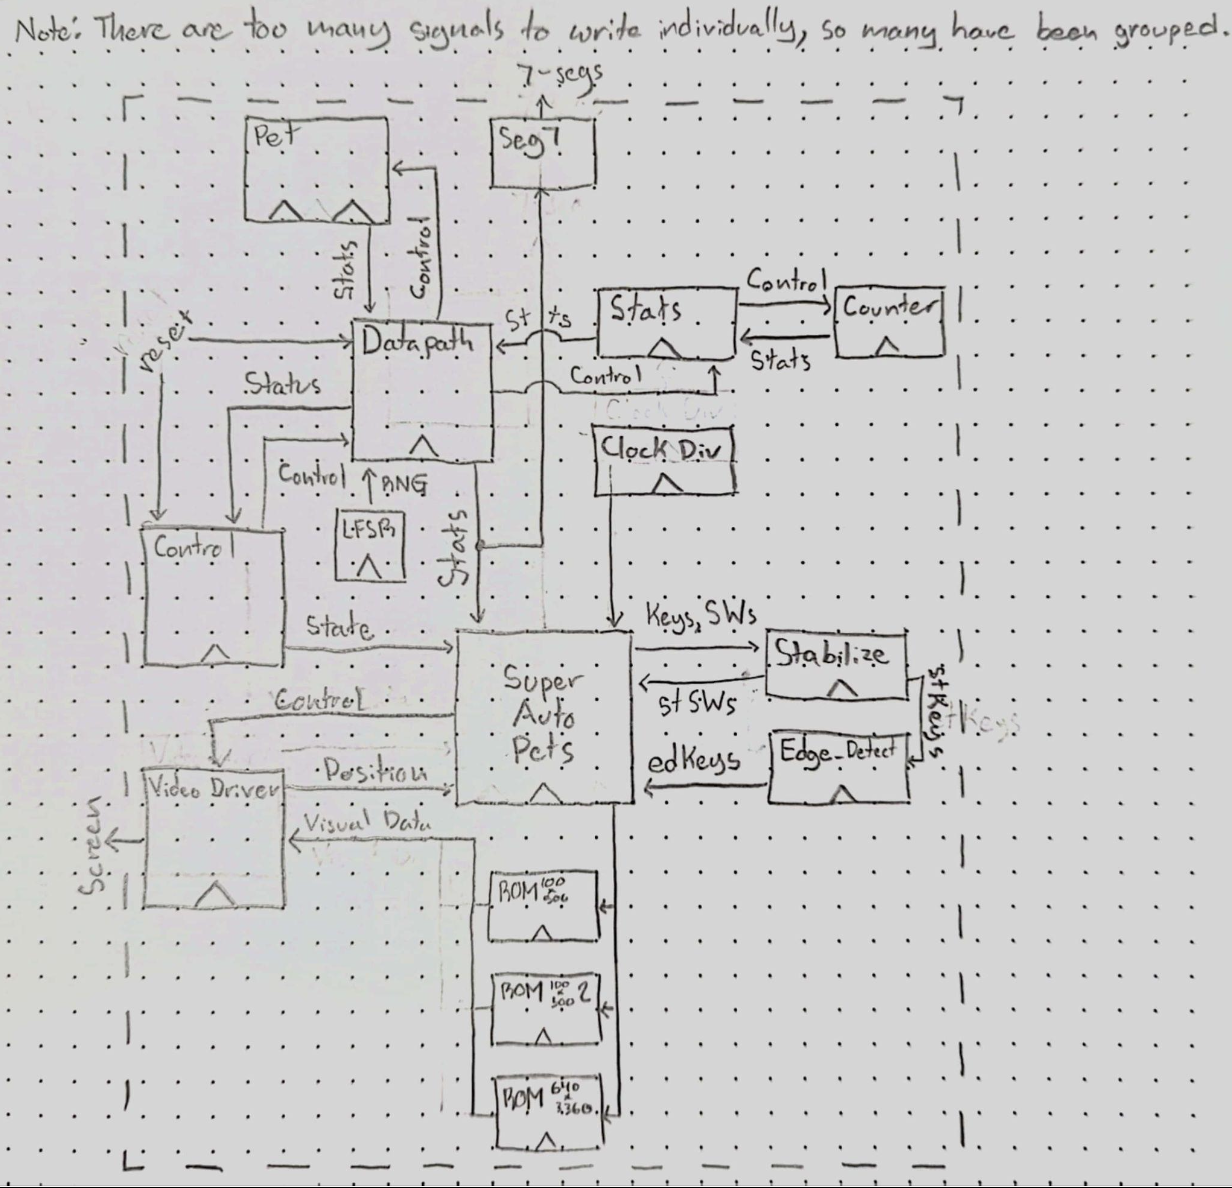 Note: There are too many signals to write individually, so many have been grouped.
7-segs
Pet
Seg7
Stats
Control
reset
Datapath
St ts
Stats
Control
Counter
Stats
Control
Status
Clock Div
Control
RNG
LFSR
Stats
Control
State
Keys, SWs
Stabilize
Super
Auto
Pets
st SWs
stKeys
Control
edKeys
Edge_Detect
Position
Video Driver
Visual Data
Screen
ROM 100
x
ROM 100 2
x
300
ROM 640
x
3360